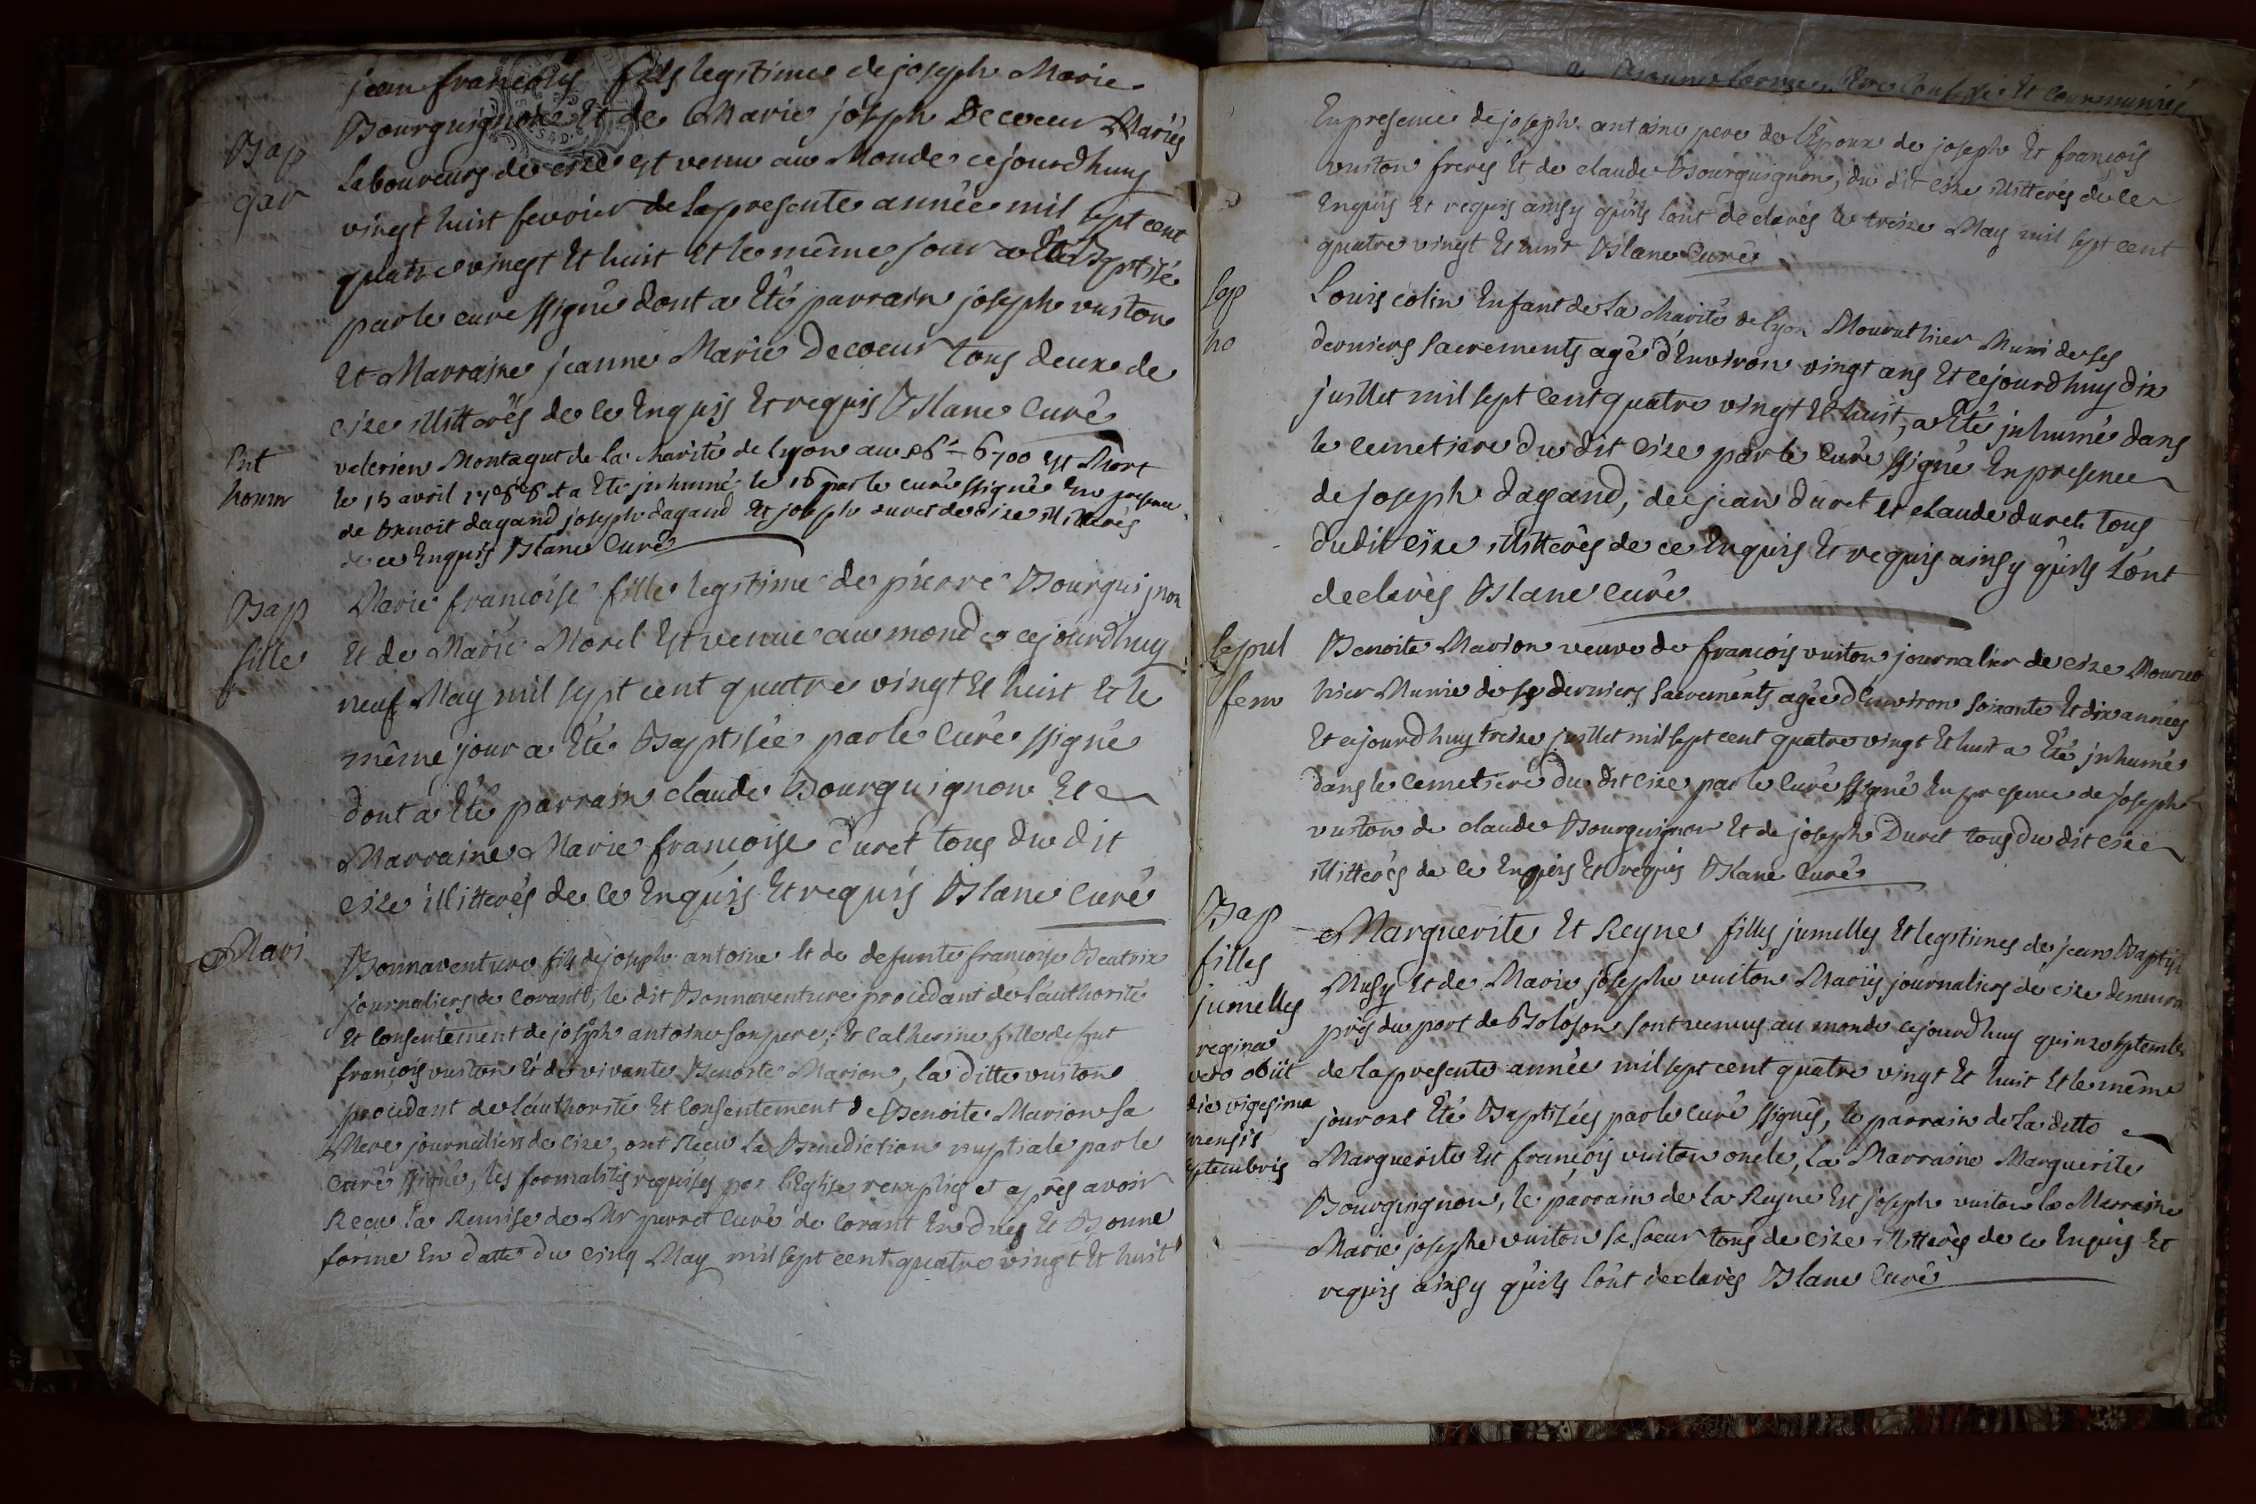 Bap
gar
jean françois fils legitime de joseph Marie
Bourguignon Et de Marie joseph Decoeur Mariés
Laboureurs de cize est venu au Monde cejourdhuy
vingt huit fevrier de la presente année mil sept cent
quatre vingt Et huit Et le même jour a Eté Baptisé
par le curé ssigné dont a Eté parrain joseph vuiton
Et Marraine jeanne Marie Decoeur tous deux de
cize illitterés de ce Enquis Et requis Blanc Curé
Ent
homm
valerien Montagut de la charité de Lyon au 6700 est Mort
le 15 avril 1788 Et a Eté jnhumé le 16 par le curé ssigné En presence
de Benoit dagand joseph dagand Et joseph duret de cize illitterés
de ce Enquis Blanc Curé
Bap
fille
Marie françoise fille legitime de pierre Bourguignon
Et de Marie Morel Est venue au monde cejourdhuy
neuf May mil sept cent quatre vingt Et huit Et le
même jour a Eté Baptisée par le Curé ssigné
dont a Eté parrain claude Bourguignon Et
Marraine Marie françoise duret tous du dit
cize illitterés de ce Enquis Et requis Blanc Curé
Mari
Bonnaventure fils de joseph antoine Et de defunte françoise Beatrix
journaliers de Corant, le dit Bonnaventure procedant de l'authorité
Et Consentement de joseph antoine son pere, Et Catherine fille de fut
françois vuiton Et de vivante Benoite Marion, la ditte vuiton
procedant de l'authorité Et Consentement de Benoite Marion sa
Mere journaliers de cize, ont Reçu la Benediction nuptiale par le
Curé ssigné, les formalités requises par l'Eglise remplies et après avoir
Reçu la Remise de Mr perret Curé de Corant En dues Et Bonne
forme En datte du cinq May mil sept cent quatre vingt Et huit
En presence de joseph antoine pere de l'Epoux de joseph Et françois
vuiton freres Et de claude Bourguignon, du dit cize illitterés de ce
Enquis Et requis ainsy qu'ils l'ont declarés le treize May mil sept cent
quatre vingt Et huit Blanc Curé
Sep
ho
Louis colin Enfant de la charité de lyon Mourut hier Muni de ses
derniers sacrements agé d'Environ vingt ans Et cejourdhuy dix
juillet mil sept cent quatre vingt Et huit, a Eté jnhumé dans
le cemetiere du dit Cize par le Curé ssigné En presence
de joseph dagand, de jean duret et claude duret tous
dudit cize illitterés de ce Enquis Et requis ainsy qu'ils l'ont
declarés Blanc curé
Sepul
fem
Benoite Marion veuve de françois vuiton journalier de cize Mourut
hier Munie de ses derniers sacrements agée d'Environ soixante Et dix années
Et cejourdhuy treize juillet mil sept cent quatre vingt Et huit a Eté jnhumé
dans le cemetiere du dit cize par le Curé ssigné En presence de joseph
vuiton de claude Bourguignon Et de joseph Duret tous du dit cize
illitterés de ce Enquis Et requis Blanc Curé
Bap
filles
jumelles
regina
vero obiit
die vigesima
mensis
septembris
Marguerite Et Reyne filles jumelles Et legitimes de jean Baptiste
Musy Et de Marie josephe vuiton Mariés journaliers de cize demeurant
près du port de Boloson sont venues au monde cejourdhuy quinze septembre
de la presente année mil sept cent quatre vingt Et huit Et le même
jour ont Eté Baptisées par le Curé ssignés, le parrain de la ditte
Marguerite Est françois vuiton oncle, La Marraine Marguerite
Bourguignon, le parrain de La Reyne Est joseph vuiton la Marraine
Marie josephe vuiton sa soeur tous de cize illitterés de ce Enquis Et
requis ainsy qu'ils l'ont declarés Blanc Curé